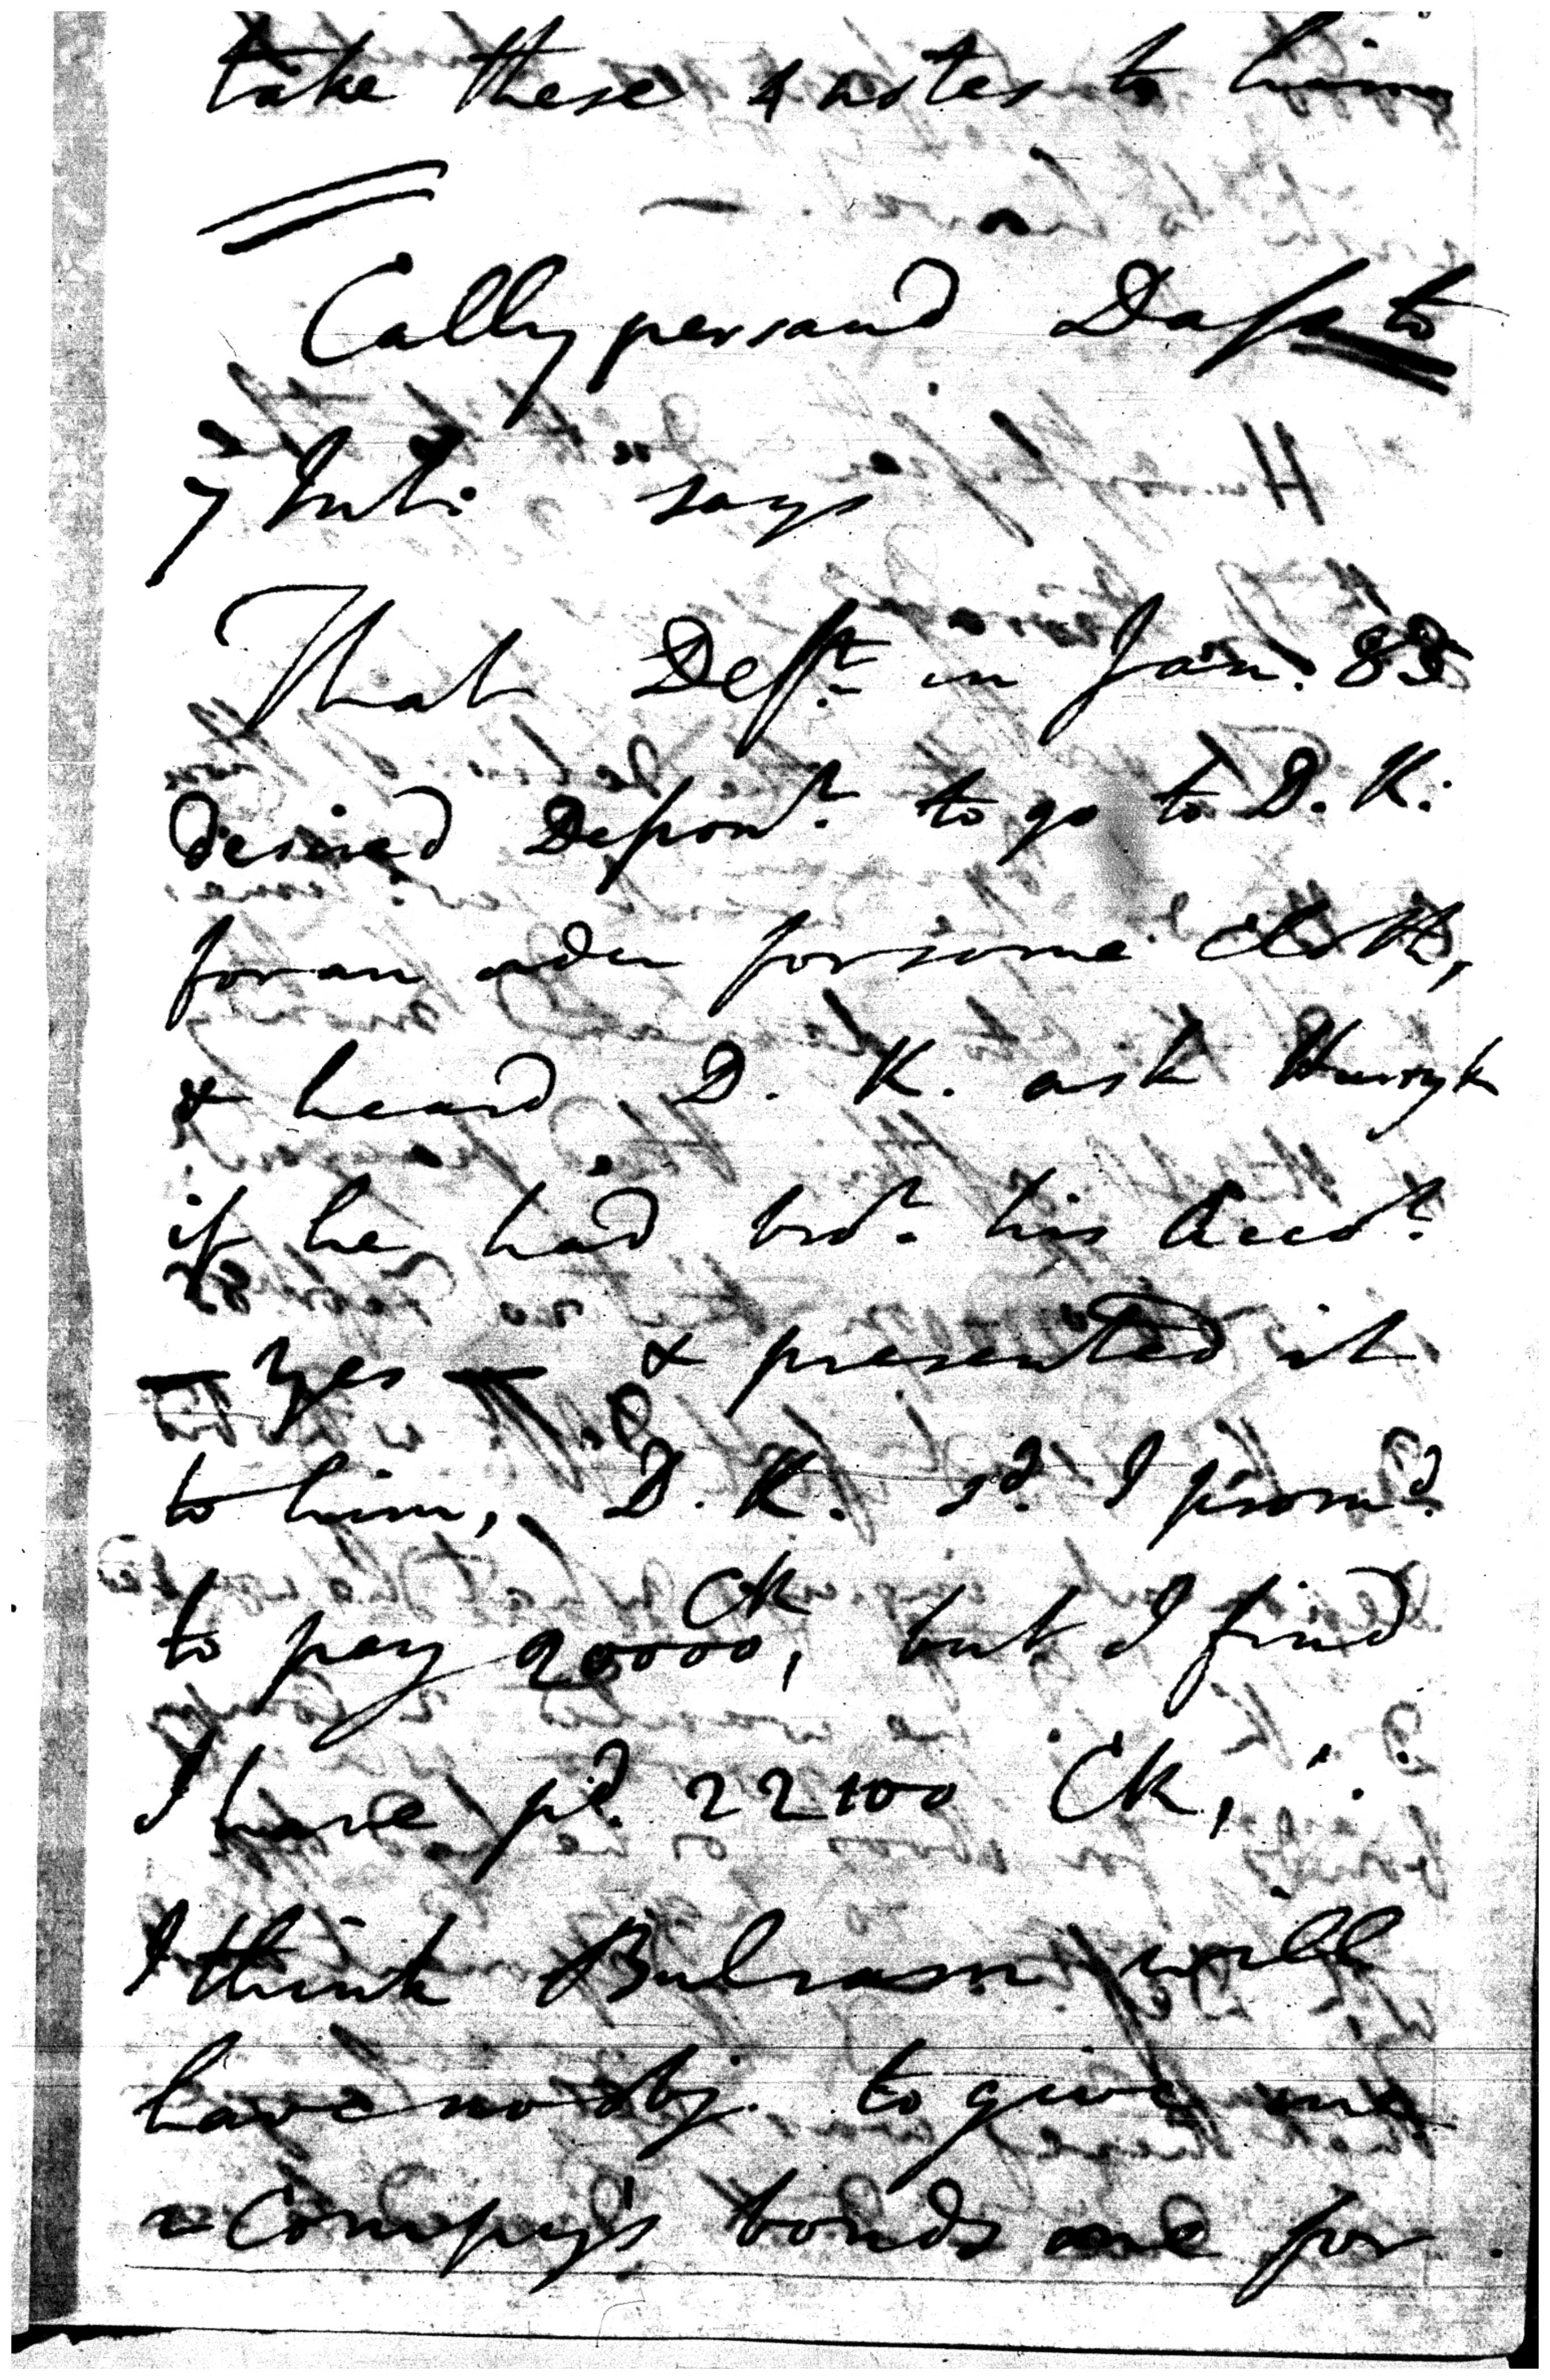 take these 4 notes to him
Callypersaud Dass to
7 Inti. says
That Deft. in Jan. 85
desired Depont. to go to D. K.
for an order for some cloth,
& heard D. K. ask Hurryk
if he had brot. his Accot.
— Yes — & presented it
to him, D. K. sd. I promd.
to pay 20000 CR, but I find
I have pd. 22100 CR,
I think Bulram will
have no obj. to give me
2 Compy's bonds one for